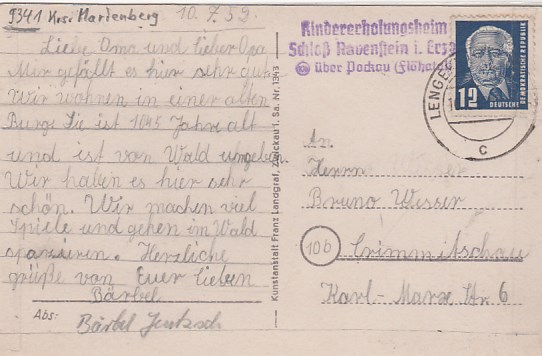 9341 Krsr Marienberg. 10.7.59.
Liebe Oma und lieber Opa
Mir gefällt es hier sehr gut
Wir wohnen in einer alten
Burg. Sie ist 1045 Jahre alt
und ist von Wald umgeben.
Wir haben es hier sehr
schön. Wir machen viel
Spiele und gehen im Wald
spazieren. Herzliche
grüße von Euer lieben
Bärbel
Abs: Bärbel Jentzsch
Kunstanstalt Franz Landgraf, Zwickau i. Sa. Nr. 1343
Kindererholungsheim
Schloß Rauenstein i. Erzg
über Pockau (Flöhatal)
DEUTSCHE DEMOKRATISCHE REPUBLIK
12
LENGE
c
An
Herrn
Bruno Wesser
10b Crimmitschau
Karl-Marx Str. 6